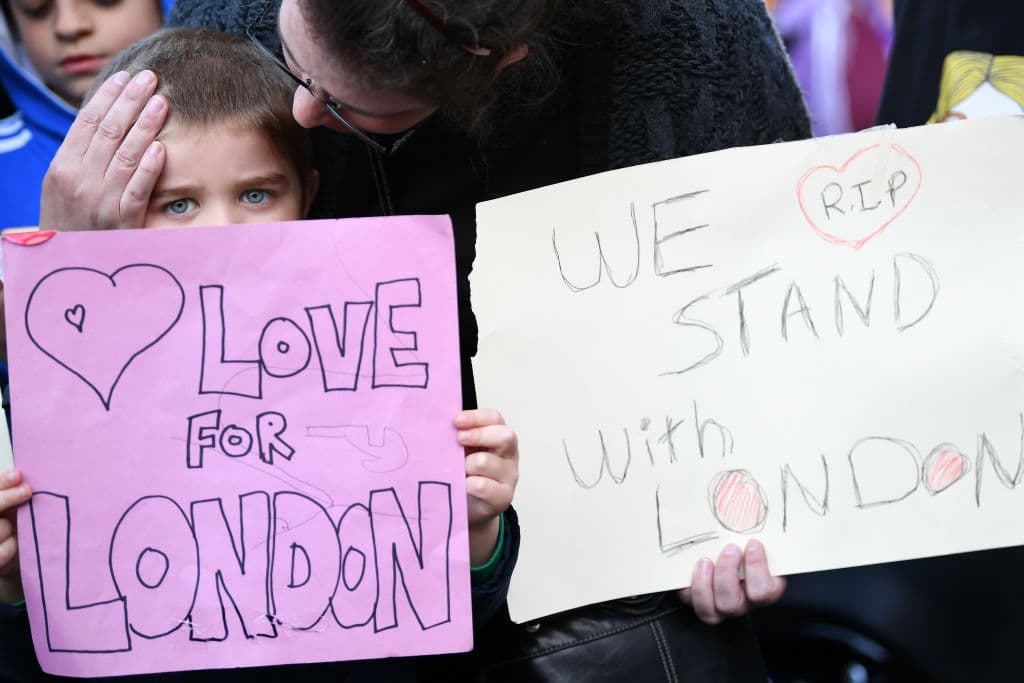 LOVE
FOR
LONDON
WE
R.I.P
STAND
With
LONDON